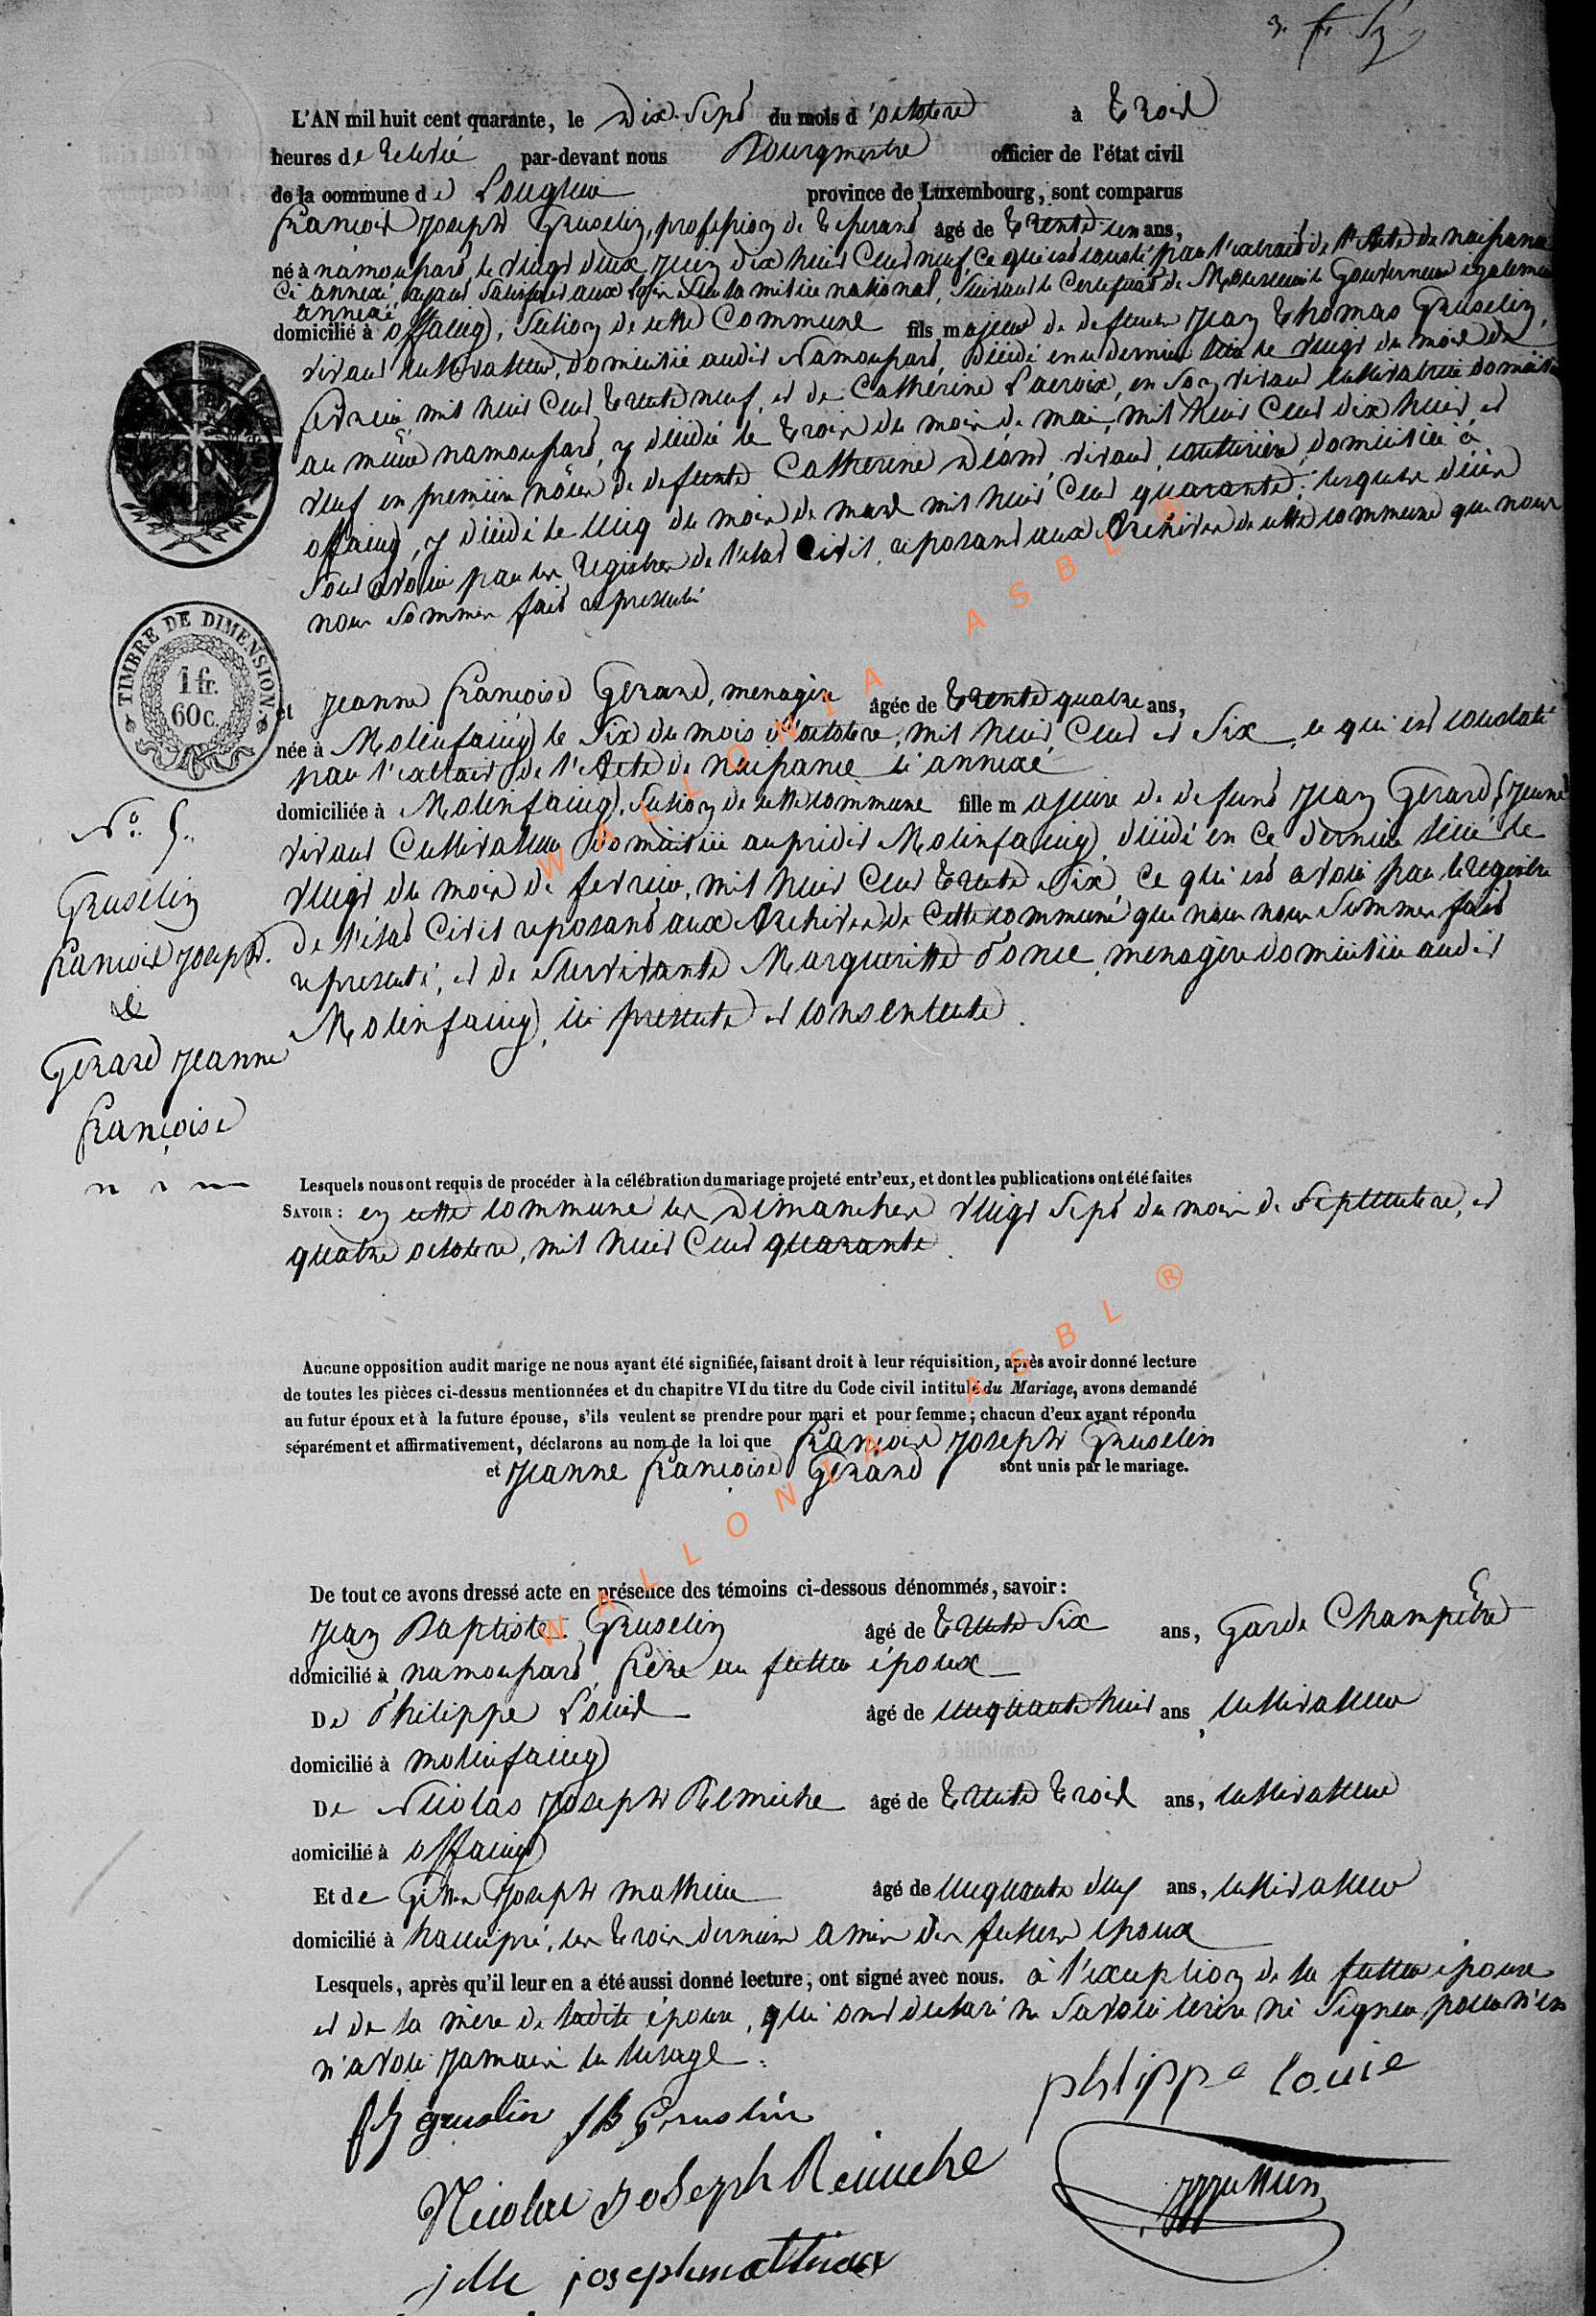 L'AN mil huit cent quarante, le Dix-Sept du mois d'octobre à Trois
heures de relevée par-devant nous Bourgmestre officier de l'état civil
de la commune de Longlier province de Luxembourg, sont comparus
françois joseph Gruselin, profession de tisserand âgé de trente un ans,
né à namoussard, le vingt deux juin dix huit Cent neuf, ce qui est constaté par l'extrait de l'Acte de naissance
Ci annexé, ayant satisfait aux loix sur la milice national, suivant le Certificat de Monsieur le Gouverneur également
annexé
domicilié à offaing, section de cette Commune fils majeur de defunts jean thomas Gruselin,
vivant Cultivateur, domicilié audit Namoussart, décédé en ce dernier lieu le vingt du mois de
fevrier, mil huit Cent trente neuf, et de Catherine Lacroix, en son vivant cultivatrice domiciliée
au même namoussard, y décédée le trois du mois de mai, mil huit Cent dix huit et
veuf en première nôces de defunte Catherine vivant, couturière, domiciliée à
offaing, y décédé le cinq du mois de mars mil huit Cent quarante; lesquels décès
sont avoués par les registres de l'état Civil, reposant aux Archives de cette commune que nous
nous sommes fait representé
TIMBRE DE DIMENSION
1 fr.
60 c.
et jeanne françoise Gerard, menagère âgée de trente quatre ans,
née à Molinfaing le Six du mois d'octobre, mil huit Cent et Six, ce qui est constaté
par l'extrait de l'Acte de naissance ci annexé
domiciliée à Molinfaing, section de cette commune fille majeure de defunt jean Gerard, (jeune)
vivant Cultivateur domicilié au prédit Molinfaing, décédé en ce dernier lieu le
vingt du mois de fevrier, mil huit Cent trente Six, ce qui est avoué par le registre
de l'état Civil reposant aux Archives de Cette commune que nous nous sommes fait
representé, et de survivante Margueritte Ponce, menagère domiciliée audit
Molinfaing, ici presente et consentente.
No. 5.
Gruselin
françois joseph.
&
Gerard jeanne
françoise
Lesquels nous ont requis de procéder à la célébration du mariage projeté entr'eux, et dont les publications ont été faites
SAVOIR : en cette commune les Dimanches vingt Sept du mois de Septembre, et
quatre octobre, mil huit Cent quarante.
Aucune opposition audit marige ne nous ayant été signifiée, faisant droit à leur réquisition, après avoir donné lecture
de toutes les pièces ci-dessus mentionnées et du chapitre VI du titre du Code civil intitulé du Mariage, avons demandé
au futur époux et à la future épouse, s'ils veulent se prendre pour mari et pour femme ; chacun d'eux ayant répondu
séparément et affirmativement, déclarons au nom de la loi que françois joseph Gruselin
et jeanne françoise Gerard sont unis par le mariage.
De tout ce avons dressé acte en présence des témoins ci-dessous dénommés, savoir :
jean Baptiste Gruselin âgé de trente Six ans, Garde Champêtre
domicilié à namoussard, frère au futur époux
De Philippe Louis âgé de cinquante huit ans, cultivateur
domicilié à molinfaing
De Nicolas joseph Remiche âgé de trente trois ans, cultivateur
domicilié à offaing
Et de Gilles joseph mathieu âgé de cinquante deux ans, cultivateur
domicilié à harcipré, les trois derniers amis des futurs époux
Lesquels, après qu'il leur en a été aussi donné lecture, ont signé avec nous. à l'exception de la future épouse
et de la mère de ladite épouse, qui ont declaré ne savoir écrire ni Signer pour n'en
n'avoir jamais eu l'usage.
fJ gruslin JB Gruslin
philippe louis
Nicolas Joseph Remiche
jille joseph mathieu
WALLONIA ASBL ®
WALLONIA ASBL ®